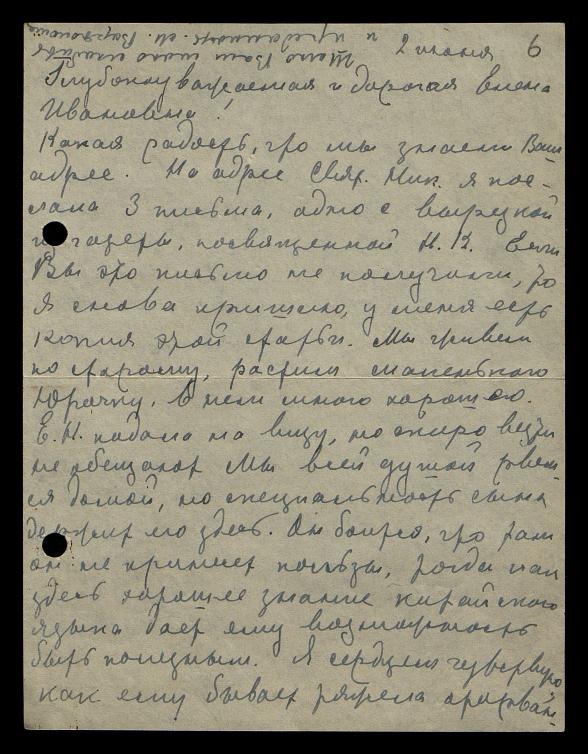 2 июня 6
Глубокоуважаемая и дорогая Елена
Ивановна!
Какая радость, что мы знаем Ваш
адрес. На адрес Свят. Ник. я пос-
лала 3 письма, одно с вырезкой
из газеты, посвященной Н. К. Если
Вы это письмо не получили, то
я снова пришлю, у меня есть
копия этой статьи. Мы живем
по старому, растим маленького
Юрочку, в нем много хорошего.
Е. П. подала на визу, но скоро визу
не обещают Мы всей душой рвем-
ся домой, но специальность сына
держит его здесь. Он боится, что там
он не принесет пользы, тогда как
здесь хорошее знание китайского
языка дает ему возможность
быть полезным. Я сердцем чувствую
как ему бывает тяжела
Шлю Вам мою
и преданность. М.